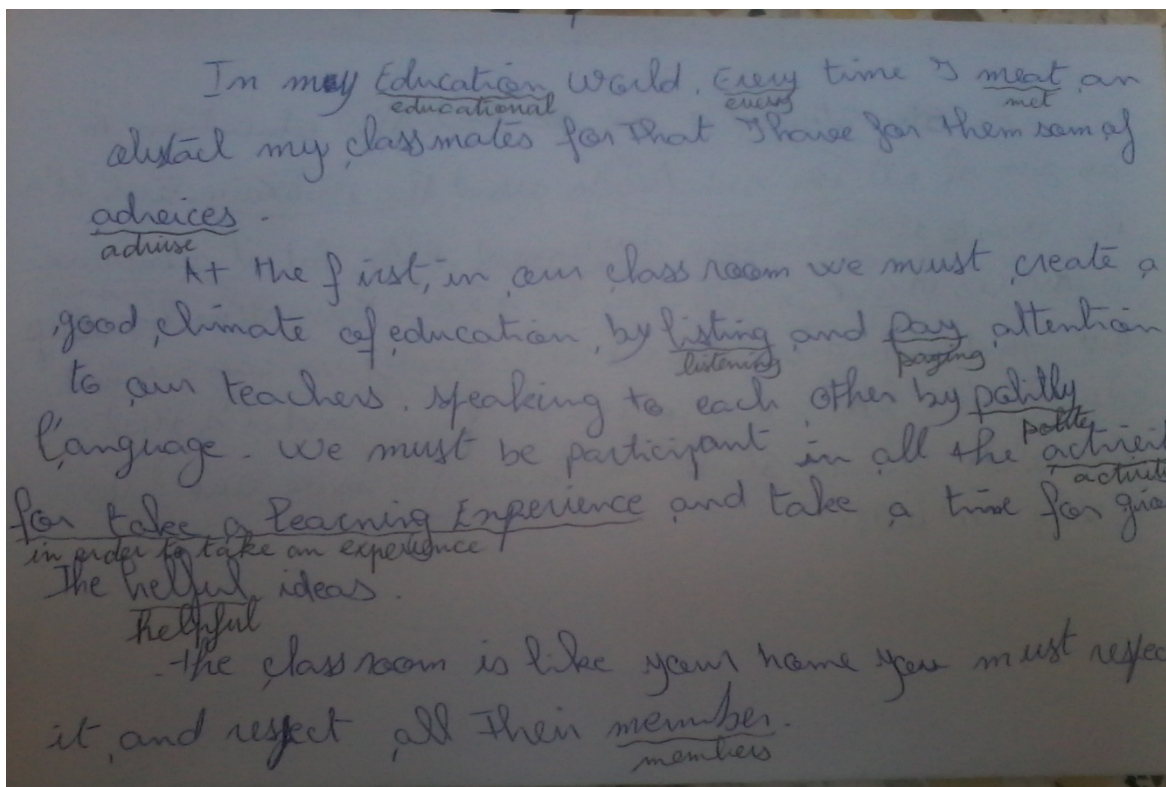 In my Education world. Every time I meat an
educational every met
obstacl my classmates for that I have for them som of
adveices.
advise
At the first, in our class room we must create a
good climate of education, by listing and pay attention
listening paying
to our teachers. speaking to each other by politly
polite
language. we must be participant in all the
for take a learning Experience and take a time for
in order to take an experience
The helful ideas.
helpful
. the class room is like your home you must
it, and respect all Their memnber.
members